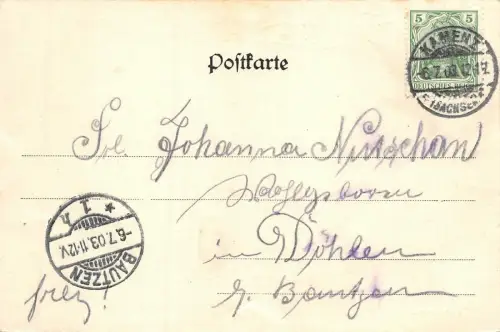 5 5
DEUTSCHES REICH
KAMENZ
6.7.03
(SACHSEN)
Postkarte
Frl. Johanna Nietzschan
Wohlgeboren
in Döhlen
b. Bautzen
BAUTZEN
-6.7.03.11-12V.
* 1 h
frei!